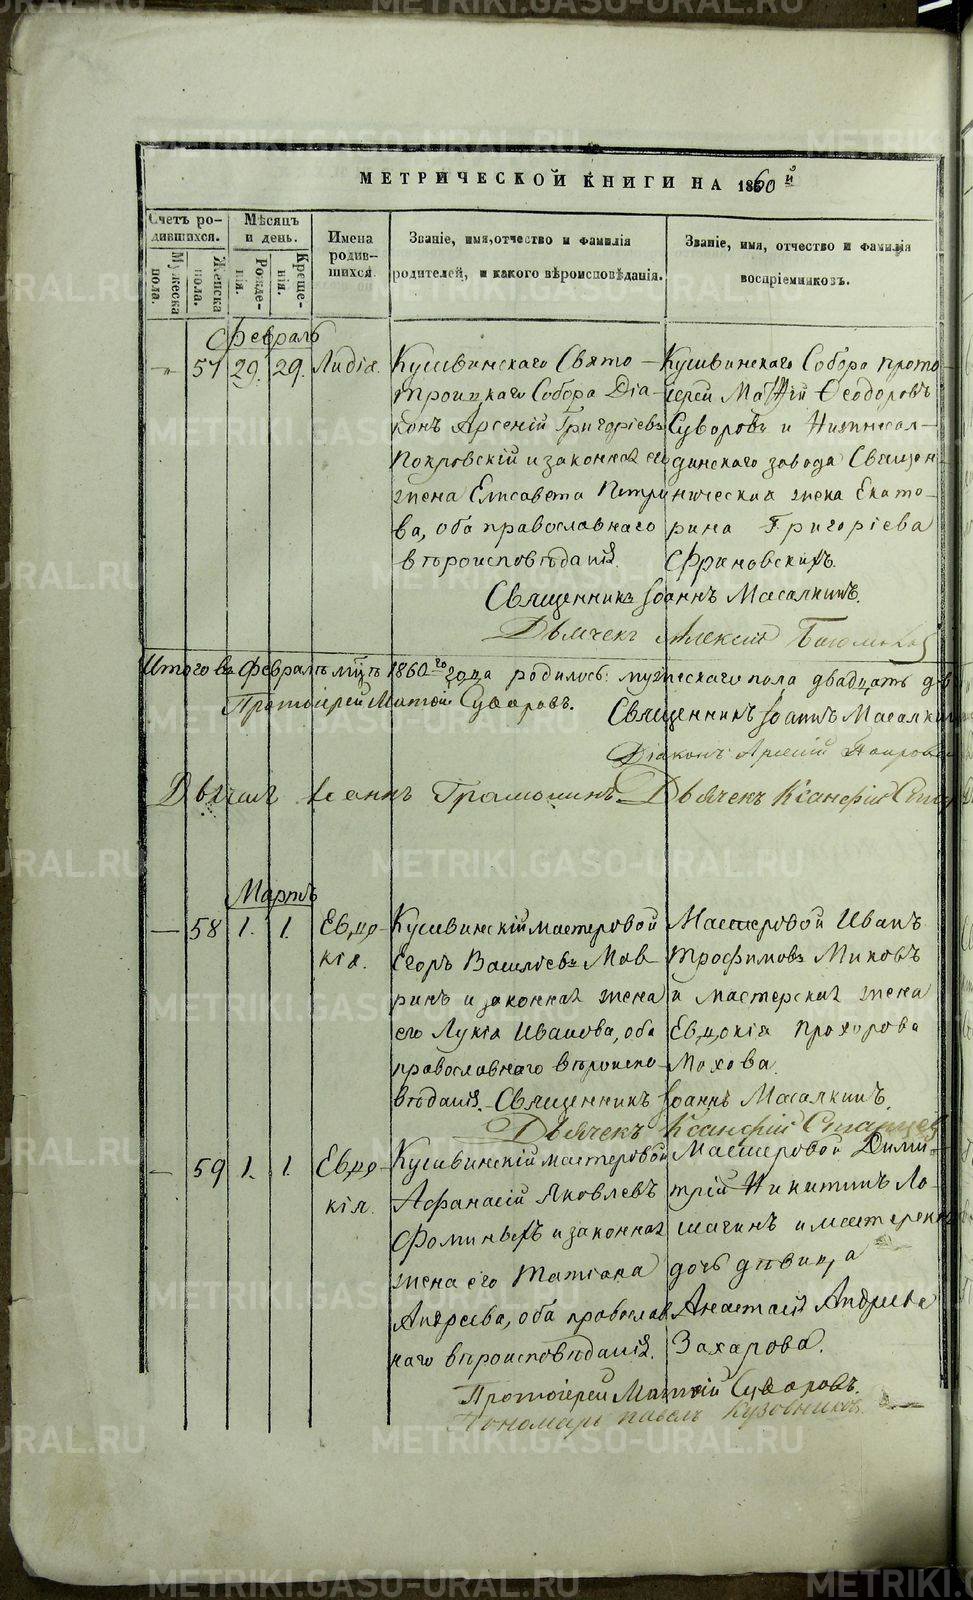 МЕТРИЧЕСКОЙ КНИГИ НА 1860й
Счетъ ро-
дившихся.
Мужеска
пола.
Женска
пола.
Мѣсяцъ
и день.
Рожде-
нія.
Креще-
нія.
Имена
родив-
шихся.
Званіе, имя, отчество и фамилія
родителей, и какого вѣроисповѣданія.
Званіе, имя, отчество и фамилія
воспріемниковъ.
Февраль
57 29. 29. Лидія.
Кушвинскаго Свято-
троицкаго Собора Діа-
конъ Арсеній Григоріевъ
Покровскій и законная его
жена Елисавета Петро
ва, оба православнаго
вѣроисповѣданія.
Кушвинскаго Собора прото-
іерей Матѳій Ѳеодоровъ
Суворовъ и Нижнесал-
динскаго завода Священ
ническая жена Екате-
рина Григоріева
Священникъ Іоаннъ Масалкинъ.
Дьячекъ Алексій
Итого въ Февралѣ мцѣ 1860го года родилось: мужескаго пола двадцать
Протоіерей Матѳій Суворовъ.
Священникъ Іоаннъ Масалкинъ
Діаконъ Арсеній Покровскій
Дьячекъ Іоаннъ Грамолинъ
Дьячекъ Ксанфій
Мартъ
— 58 1. 1. Евдо-
кія.
Кушвинскій мастеровой
Егоръ Васильевъ Мав-
ринъ и законная жена
его Лукія Иванова, оба
православнаго вѣроиспо-
вѣданія.
Мастеровой Иванъ
Трофимовъ Миковъ
и мастерская жена
Евдокія Прохорова
Мохова.
Священникъ Іоаннъ Масалкинъ.
Дьячекъ Ксанфій Старцевъ
— 59 1. 1. Евдо-
кія.
Кушвинскій мастеровой
Аѳанасій Яковлевъ
Фоминыхъ и законная
жена его Татіана
Андреева, оба православ
наго вѣроисповѣданія.
Мастеровой Дими-
трій Никитинъ Ло-
шагинъ и мастерская
дочь дѣвица
Анастасія Андреева
Захарова.
Протоіерей Матѳій Суворовъ.
Пономарь Павелъ Кузовниковъ.
METRIKI.GASO-URAL.RU